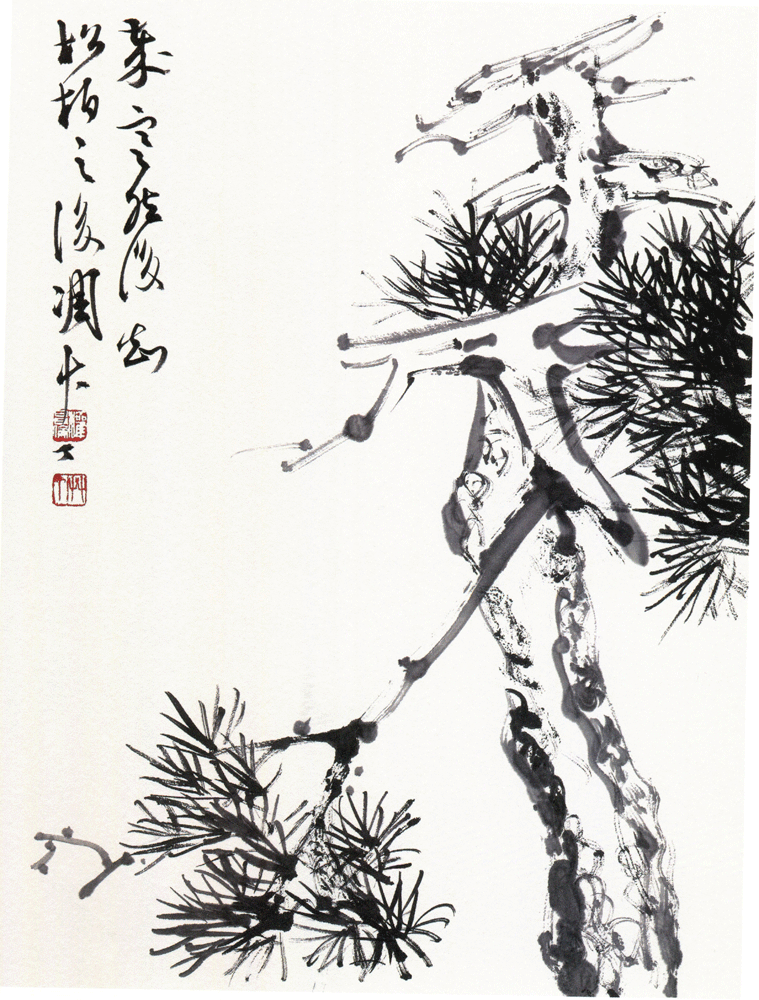 歲寒然後知
松柏之後凋